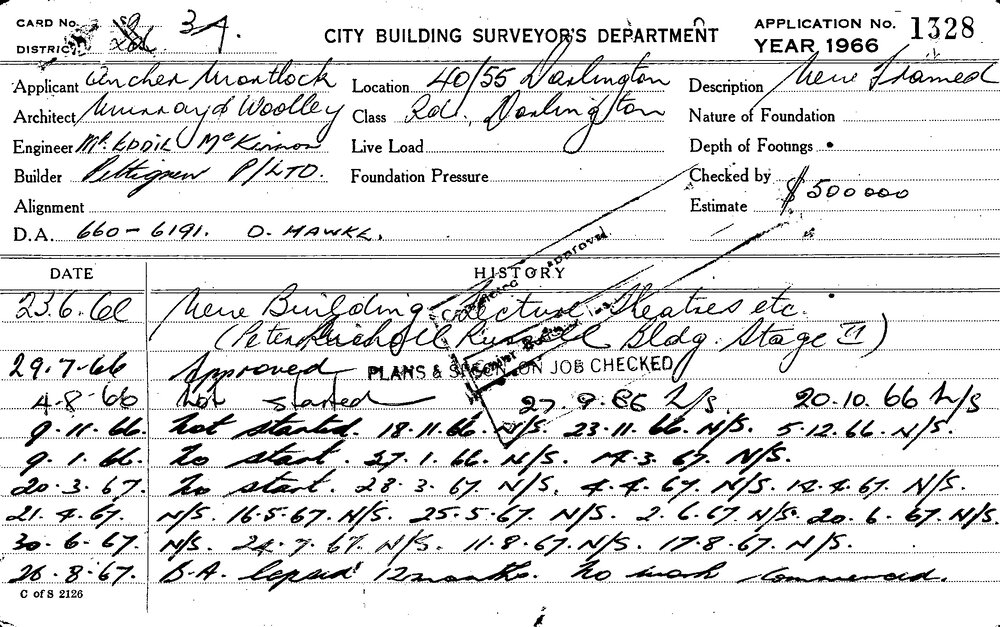 CARD No. 3A.
CITY BUILDING SURVEYOR'S DEPARTMENT
APPLICATION No. 1328
DISTRICT
YEAR 1966
Applicant Ancher Mortlock Location 40/55 Darlington Description New Framed
Architect Murray & Woolley Class Rd., Darlington Nature of Foundation
Engineer Mr. Eddie McKinnon Live Load Depth of Footings
Builder Pettigrew P/LTD. Foundation Pressure Checked by
Alignment Estimate $500000
D.A. 660-6191. O. HAWKE.
DATE HISTORY
23.6.66 New Building Lecture Theatres etc.
(Peter Russell Bldg. Stage II)
29.7.66 Approved PLANS & SPECN. ON JOB CHECKED
4-8-66 Not started 27.9.66 N/S 20.10.66 N/S
9.11.66. Not started. 18.11.66. N/S. 23.11.66. N/S. 5.12.66. N/S.
9.1.66. No start. 27.1.66. N/S. 14.3.67. N/S.
20.3.67. No start. 28.3.67. N/S. 4.4.67. N/S. 14.4.67. N/S.
21.4.67. N/S. 16.5.67. N/S. 25.5.67. N/S. 2.6.67. N/S. 20.6.67. N/S.
30.6.67. N/S. 24.7.67. N/S. 11.8.67. N/S. 17.8.67. N/S.
26.8.67. B.A. lapsed 12 months. No work commenced.
C of S 2126